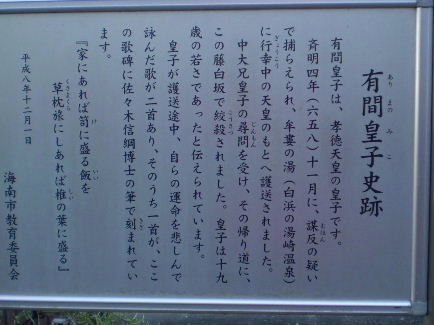 有間皇子史跡
有間皇子は、孝徳天皇の皇子です。
斉明四年（六五八）十一月に、謀反の疑い
で捕らえられ、牟婁の湯（白浜の湯崎温泉）
に行幸中の天皇のもとへ護送されました。
中大兄皇子の尋問を受け、その帰り道に、
この藤白坂で絞殺されました。皇子は十九
歳の若さであったと伝えられています。
皇子が護送途中、自らの運命を悲しんで
詠んだ歌が二首あり、そのうち一首が、ここ
の歌碑に佐々木信綱博士の筆で刻まれてい
ます。
『家にあれば笥に盛る飯を
草枕旅にしあれば椎の葉に盛る』
平成八年十二月一日
海南市教育委員会